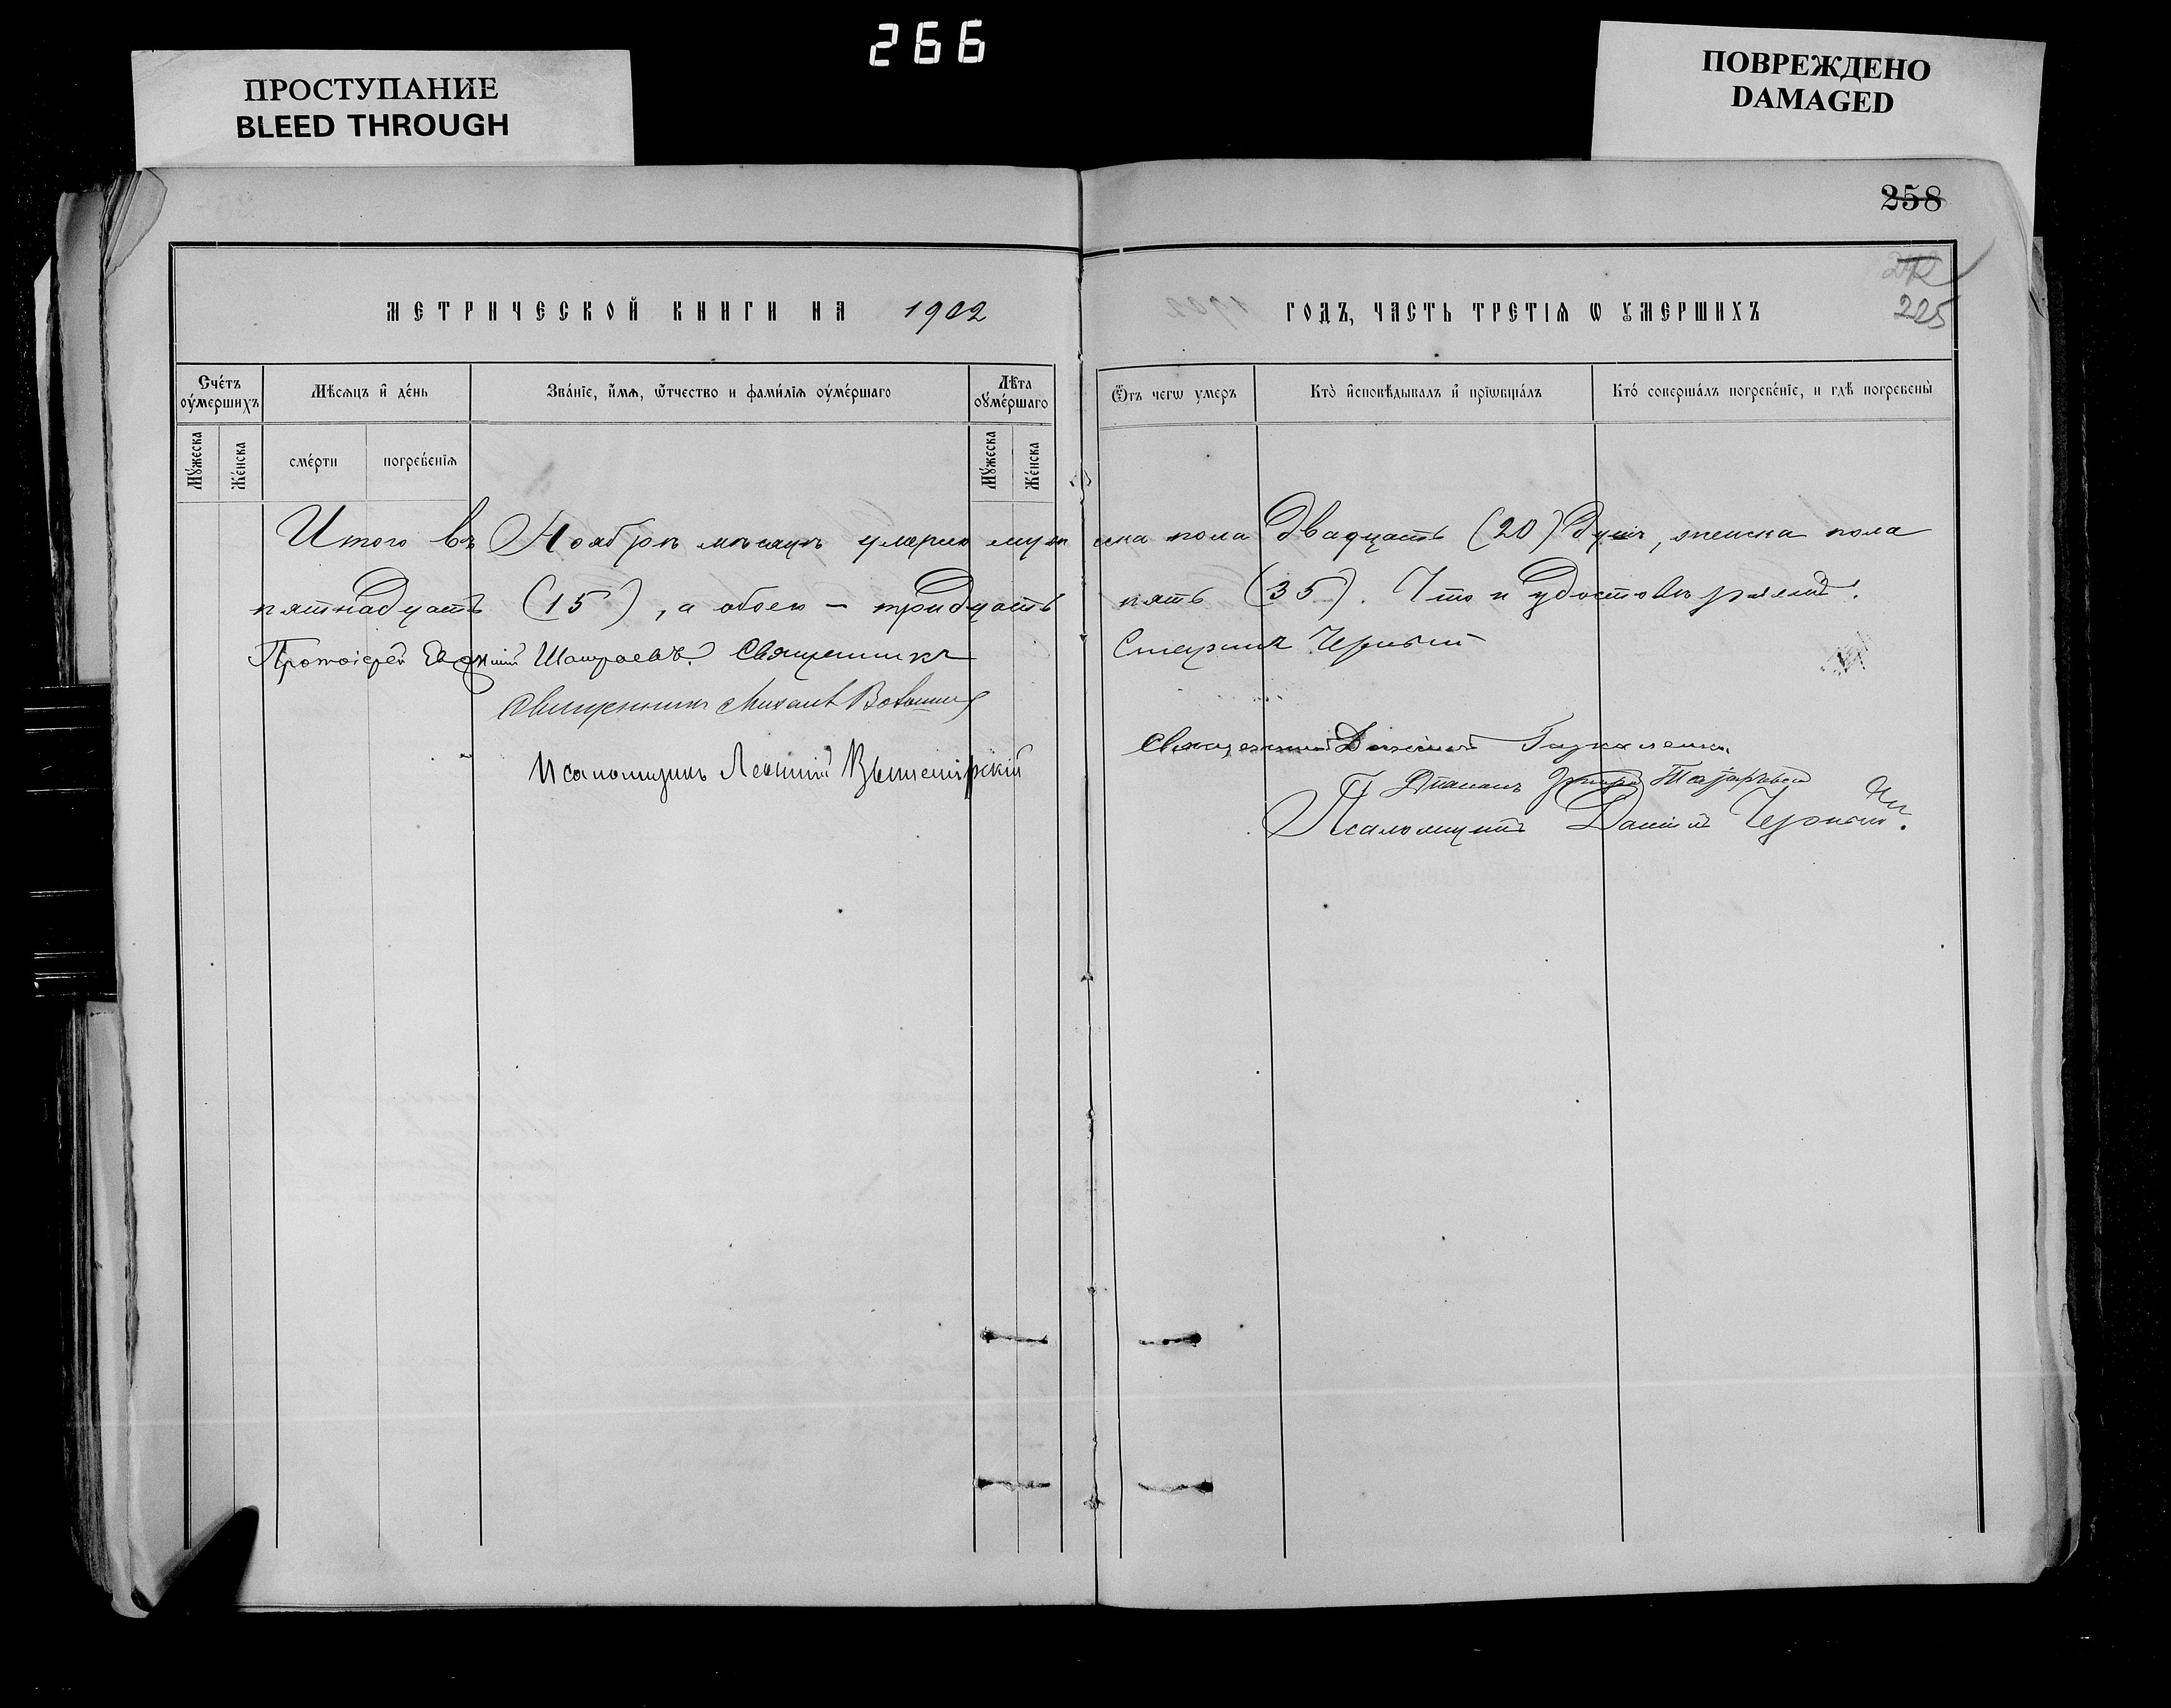 266
ПРОСТУПАНИЕ
BLEED THROUGH
ПОВРЕЖДЕНО
DAMAGED
258
272
225
МЕТРИЧЕСКОЙ КНИГИ НА 1902 ГОДЪ, ЧАСТЬ ТРЕТІѦ Ѡ УМЕРШИХЪ
Счéтъ оумершихъ
Мѣсѧцъ и дéнь
Звáніе, и҆́мѧ, ѿтчество и фамíліѧ оумéршаго
Лѣта оумéршаго
Ѿтъ чегѡ умеръ
Ктò и҆сповѣдывалъ и҆ прїѡбщáлъ
Ктó совершáлъ погребéніе, и гдѣ погребены̀
Мýжеска
Жéнска
смéрти
погребéніѧ
Мýжеска
Жéнска
Итого въ Ноябрѣ мѣсяцѣ умерло мужеска пола двадцать (20) душъ, женска пола
пятнадцать (15), а обоего – тридцать пять (35). Что и удостовѣряемъ:
Протоіерей Шашраевъ. Священникъ Черный
Священникъ Михаилъ
Священникъ
Псаломщикъ Леонтій
Діаконъ
Псаломщикъ Даніилъ Черный.